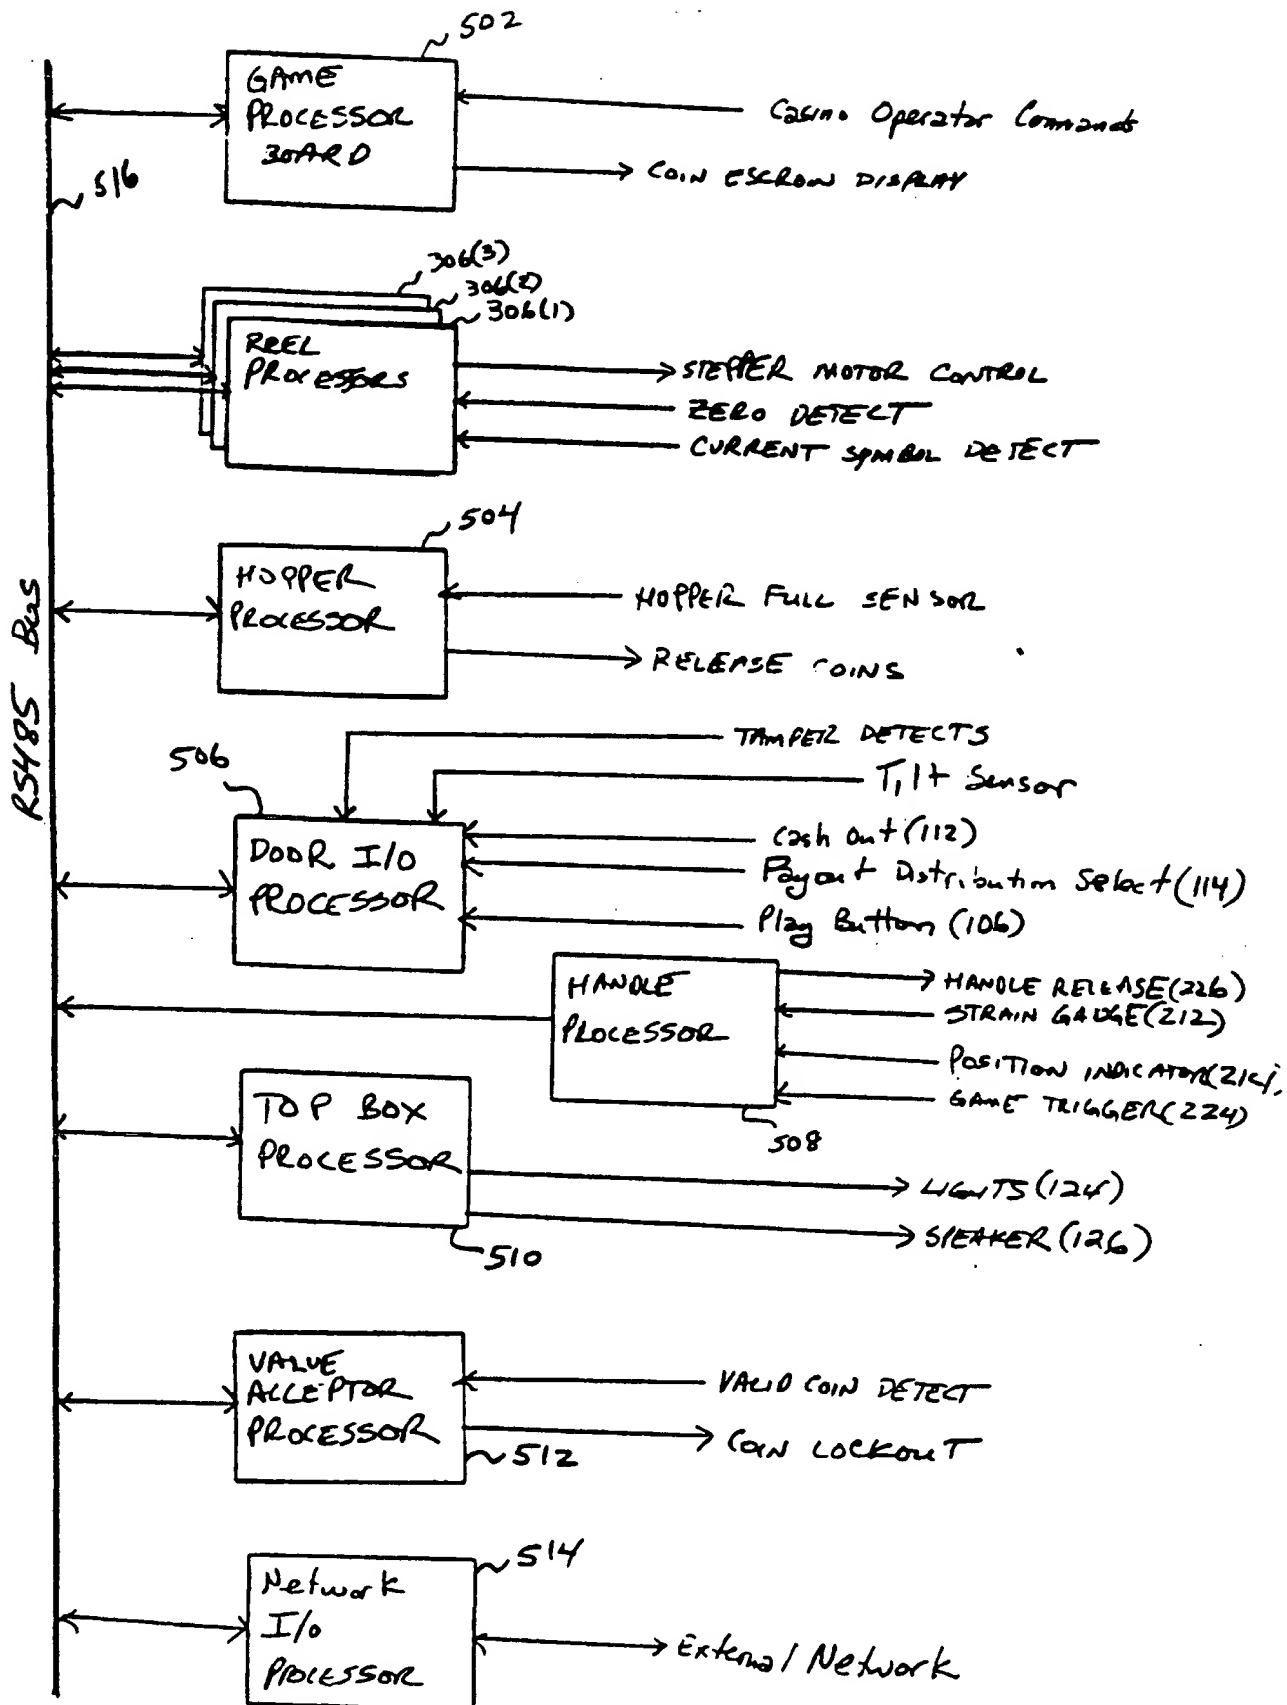 502
GAME
PROCESSOR
BOARD
Casino Operator Commands
COIN ESCROW DISPLAY
516
306(3)
306(2)
306(1)
REEL
PROCESSORS
STEPPER MOTOR CONTROL
ZERO DETECT
CURRENT SYMBOL DETECT
504
HOPPER
PROCESSOR
HOPPER FULL SENSOR
RELEASE COINS
RS485 Bus
506
TAMPER DETECTS
Tilt Sensor
DOOR I/O
PROCESSOR
Cash Out (112)
Payout Distribution Select (114)
Play Button (106)
HANDLE
PROCESSOR
508
HANDLE RELEASE (226)
STRAIN GAUGE (212)
POSITION INDICATOR
GAME TRIGGER (224)
TOP BOX
PROCESSOR
510
LIGHTS (124)
SPEAKER (126)
VALUE
ACCEPTOR
PROCESSOR
512
VALID COIN DETECT
COIN LOCKOUT
514
Network
I/O
PROCESSOR
External Network